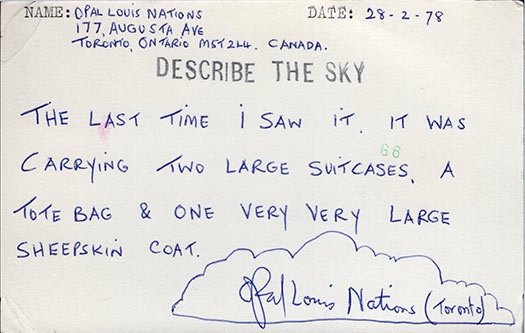 NAME: OPAL LOUIS NATIONS DATE: 28-2-78
177, AUGUSTA AVE
TORONTO, ONTARIO M5T2L4. CANADA.
DESCRIBE THE SKY
THE LAST TIME I SAW IT, IT WAS
66
CARRYING TWO LARGE SUITCASES, A
TOTE BAG & ONE VERY VERY LARGE
SHEEPSKIN COAT.
Opal Louis Nations (Toronto)